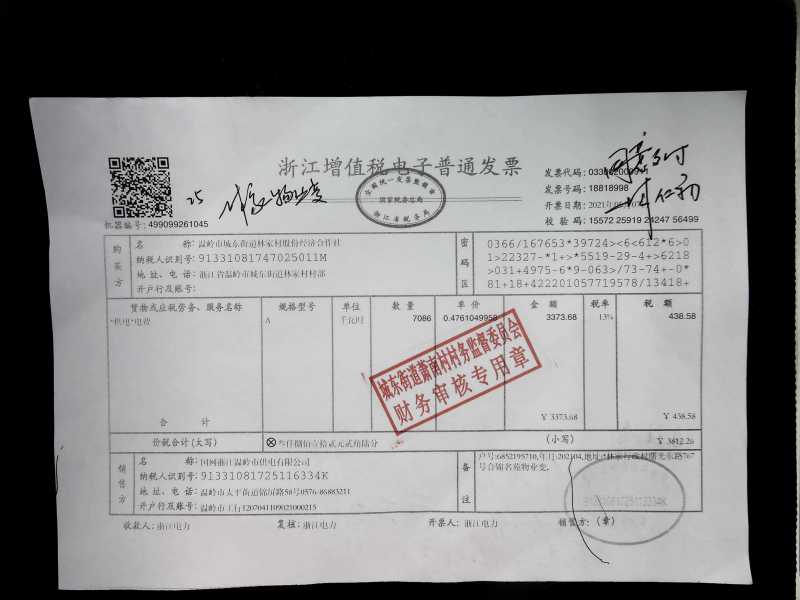 浙江增值税电子普通发票
全国统一发票监制章
国家税务总局
浙江省税务局
机器编号: 499099261045
发票代码:
发票号码: 18818998
开票日期: 2021年
校验码: 15572 25919 24247 56499
购买方
名称: 温岭市城东街道林家村股份经济合作社
纳税人识别号: 91331081747025011M
地址、电话: 浙江省温岭市城东街道林家村村部
开户行及账号:
密码区
0366/167653*39724><6<612*6>01
>22327-*1+>*5519-29-4+>6218
>031+4975-6*9-063>/73-74+-0*
81+18+422201057719578/13418+
货物或应税劳务、服务名称 规格型号 单位 数量 单价 金额 税率 税额
*供电*电费 A 千瓦时 7086 0.4761049958 3373.68 13% 438.58
城东街道萧南村村务监督委员会
财务审核专用章
合计 ¥ 3373.68 ¥ 438.58
价税合计(大写) ⊗叁仟捌佰壹拾贰元贰角陆分 (小写) ¥ 3812.26
销售方
名称: 国网浙江温岭市供电有限公司
纳税人识别号: 91331081725116334K
地址、电话: 温岭市太平街道锦屏路58号0576-86883211
开户行及账号: 温岭市工行1207041109021000215
备注
户号:6852195710,年月:202104,地址:林家行政村曙光东路767
号合锦名苑物业变.
收款人: 浙江电力 复核: 浙江电力 开票人: 浙江电力 销售方: (章)